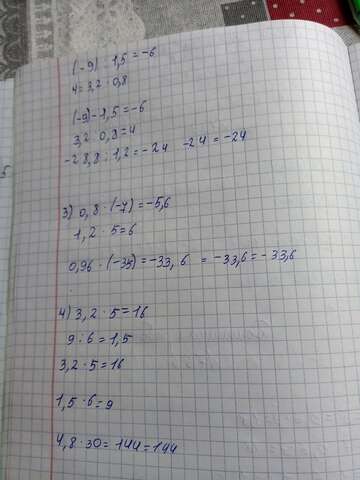 (-9) : 1,5 = -6
4 = 3,2 : 0,8
(-9) - 1,5 = -6
3,2 : 0,8 = 4
-28,8 : 1,2 = -24 -24 = -24
3) 0,8 · (-7) = -5,6
1,2 · 5 = 6
0,96 · (-35) = -33,6 = -33,6 = -33,6
:
4) 3,2 · 5 = 16
9 : 6 = 1,5
3,2 · 5 = 16
1,5 · 6 = 9
4,8 · 30 = 144 = 144